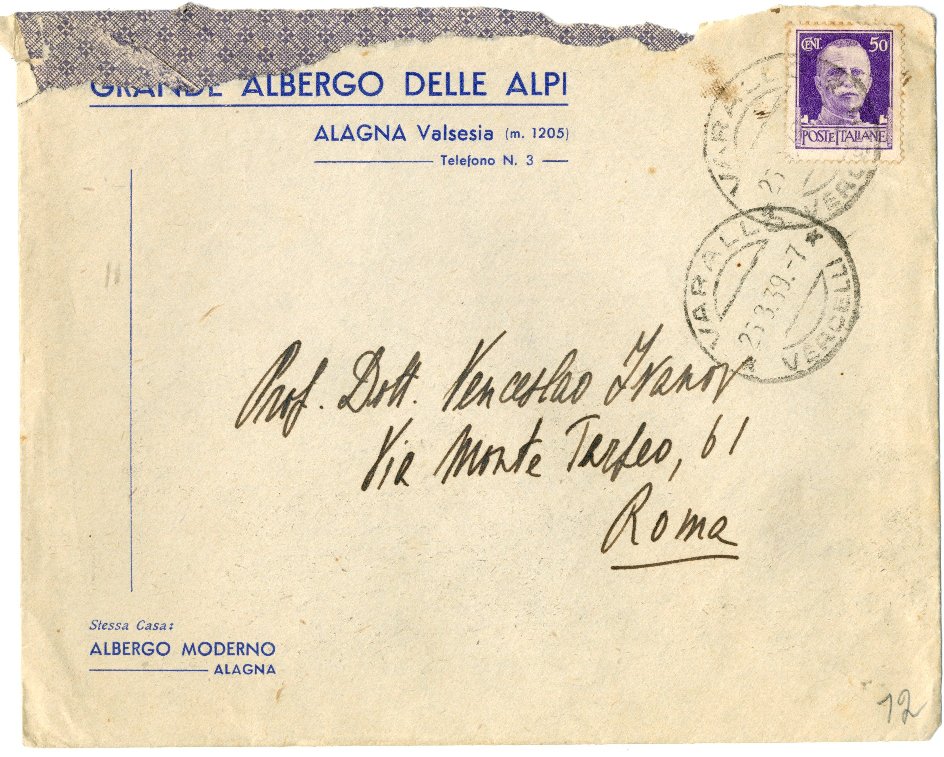 GRANDE ALBERGO DELLE ALPI
ALAGNA Valsesia (m. 1205)
Telefono N. 3
CENT. 50
POSTE ITALIANE
VARALLO VERCELLI
VARALLO * VERCELLI *
.39.-7
Prof. Dott. Venceslao Ivanov
Via Monte Tarpeo, 61
Roma
Stessa Casa:
ALBERGO MODERNO
ALAGNA
12